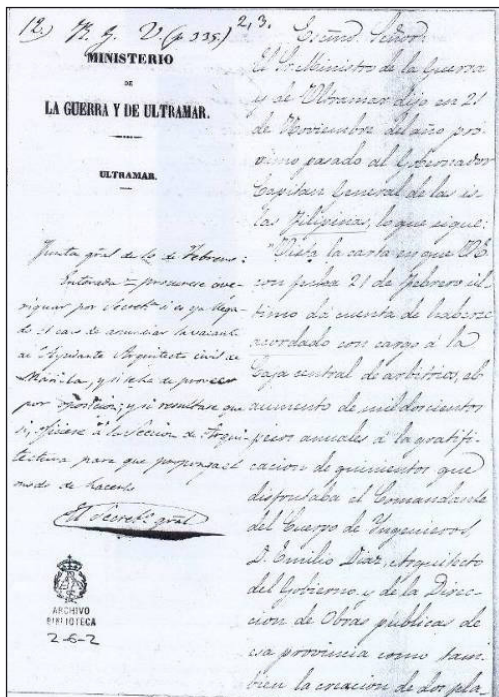 12) R. G. V. (p 335)
2, 3.
MINISTERIO
DE
LA GUERRA Y DE ULTRAMAR.
ULTRAMAR.
Junta gral de 4 de Febrero:
Enterada = procurese ave-
riguar por Secreta si es ya llega-
do el caso de anunciar la vacante
de Ayudante Arquitecto civil de
Manila, y si se ha de proveer
por oposicion; y si resultase que
si, pasese á la Seccion de Arqui-
tectura para que proponga el
modo de hacerlo
El Secreto gral
ARCHIVO
BIBLIOTECA
2-6-2
Excmo. Señor.
El Sr. Ministro de la Guerra
y de Ultramar dijo en 21
de Noviembre del año pró-
ximo pasado al Gobernador
Capitan General de las is-
las Filipinas, lo que sigue:
"Vista la carta en que V.E.
con fecha 21 de Febrero úl-
timo da cuenta de haberse
acordado con cargo á la
Caja central de arbitrios, el
aumento de mil doscientos
pesos anuales á la gratifi-
cacion de quinientos que
disfrutaba el Comandante
del Cuerpo de Yngenieros,
D. Emilio Diaz, Arquitecto
del Gobierno y de la Direc-
cion de Obras publicas de
esa provincia como tam-
bien la creacion de dos pla-